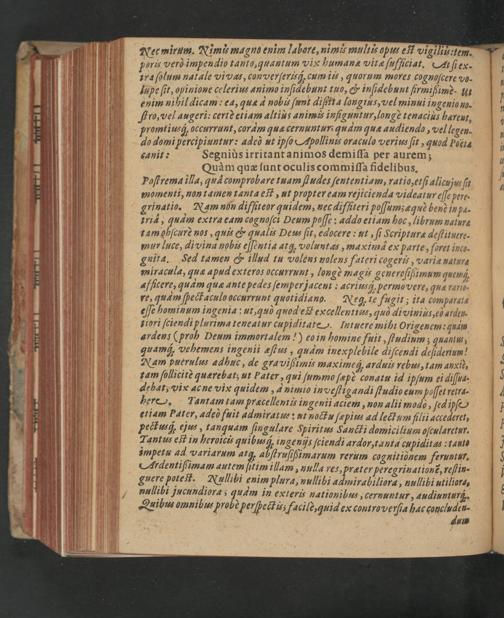 Nec mirum. Nimis magno enim labore, nimis multis opus est vigiliis: tem-
poris verò impendio tanto, quantum vix humanæ vitæ sufficiat. At si ex-
tra solum natale vivas, converserisq́; cum iis, quorum mores cognoscere vo-
lupe sit, opinione celerius animo insidebunt tuo, & insidebunt firmißimè. Ut
enim nihil dicam: ea, quæ à nobis sunt dißita longius, vel minui ingenio no-
stro, vel augeri: certè etiam altius animis infiguntur, longè tenacius hærent,
promtiusq́; occurrunt, coràm quæ cernuntur: quàm quæ audiendo, vel legen-
do domi percipiuntur: adeò ut ipso Apollinis oraculo verius sit, quod Poëta
canit: Segniùs irritant animos demissa per aurem;
Quàm quæ sunt oculis commissa fidelibus.
Postrema illa, quâ comprobare tuam studes sententiam, ratio, etsi alicujus sit
momenti, non tamen tanta est, ut propter eam rejicienda videatur esse pere-
grinatio. Nam non diffiteor quidem, nec diffiteri possum; æquè benè in pa-
triâ, quàm extra eam cognosci Deum posse: addo etiam hoc, librum naturæ
tam obscurè nos, quis & qualis Deus sit, edocere: ut, si Scripturæ destituere-
mur luce, divina nobis essentia atq́; voluntas, maximâ ex parte, foret inco-
gnita. Sed tamen & illud tu volens nolens fateri cogeris, varia naturæ
miracula, quæ apud exteros occurrunt, longè magis generosißimum quemq́;
afficere, quàm quæ ante pedes semper jacent: acriusq́; permovere, quæ rario-
re, quàm spectaculo occurrunt quotidiano. Neq́; te fugit; ita comparata
esse hominum ingenia: ut, quò quod est excellentius, quò divinius, eò arden-
tiori sciendi plurima teneatur cupiditate. Intuere mihi Origenem: quàm
ardens (proh Deum immortalem!) eo in homine fuit, studium; quantus,
quamq́; vehemens ingenii æstus, quàm inexplebile discendi desiderium!
Nam puerulus adhuc, de gravißimis maximeq́; arduis rebus, tam anxiè,
tam sollicitè quærebat: ut Pater, qui summo sæpè conatu id ipsum ei dissua-
debat, vix ac ne vix quidem, à nimio investigandi studio eum posset retra-
here. Tantam tam præcellentis ingenii aciem, non alii modò, sed ipse
etiam Pater, adeò fuit admiratus: ut noctu sæpius ad lectum filii accederet,
pectusq́; ejus, tanquam singulare Spiritus Sancti domicilium oscularetur.
Tantus est in heroicis quibusq́; ingeniis sciendi ardor, tanta cupiditas: tanto
impetu ad variarum atq́; abstrusißimarum rerum cognitionem feruntur.
Ardentißimam autem sitim illam, nulla res, præter peregrinationē, restin-
guere potest. Nullibi enim plura, nullibi admirabiliora, nullibi utiliora,
nullibi jucundiora; quàm in exteris nationibus, cernuntur, audiunturq́;
Quibus omnibus probè perspectis; facilè, quid ex controversia hac concluden-
dum